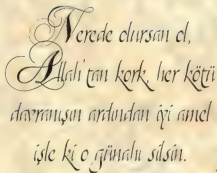 Nerede olursan ol,
Allah'tan kork, her kötü
davranışın ardından iyi amel
işle ki o günahı silsin.